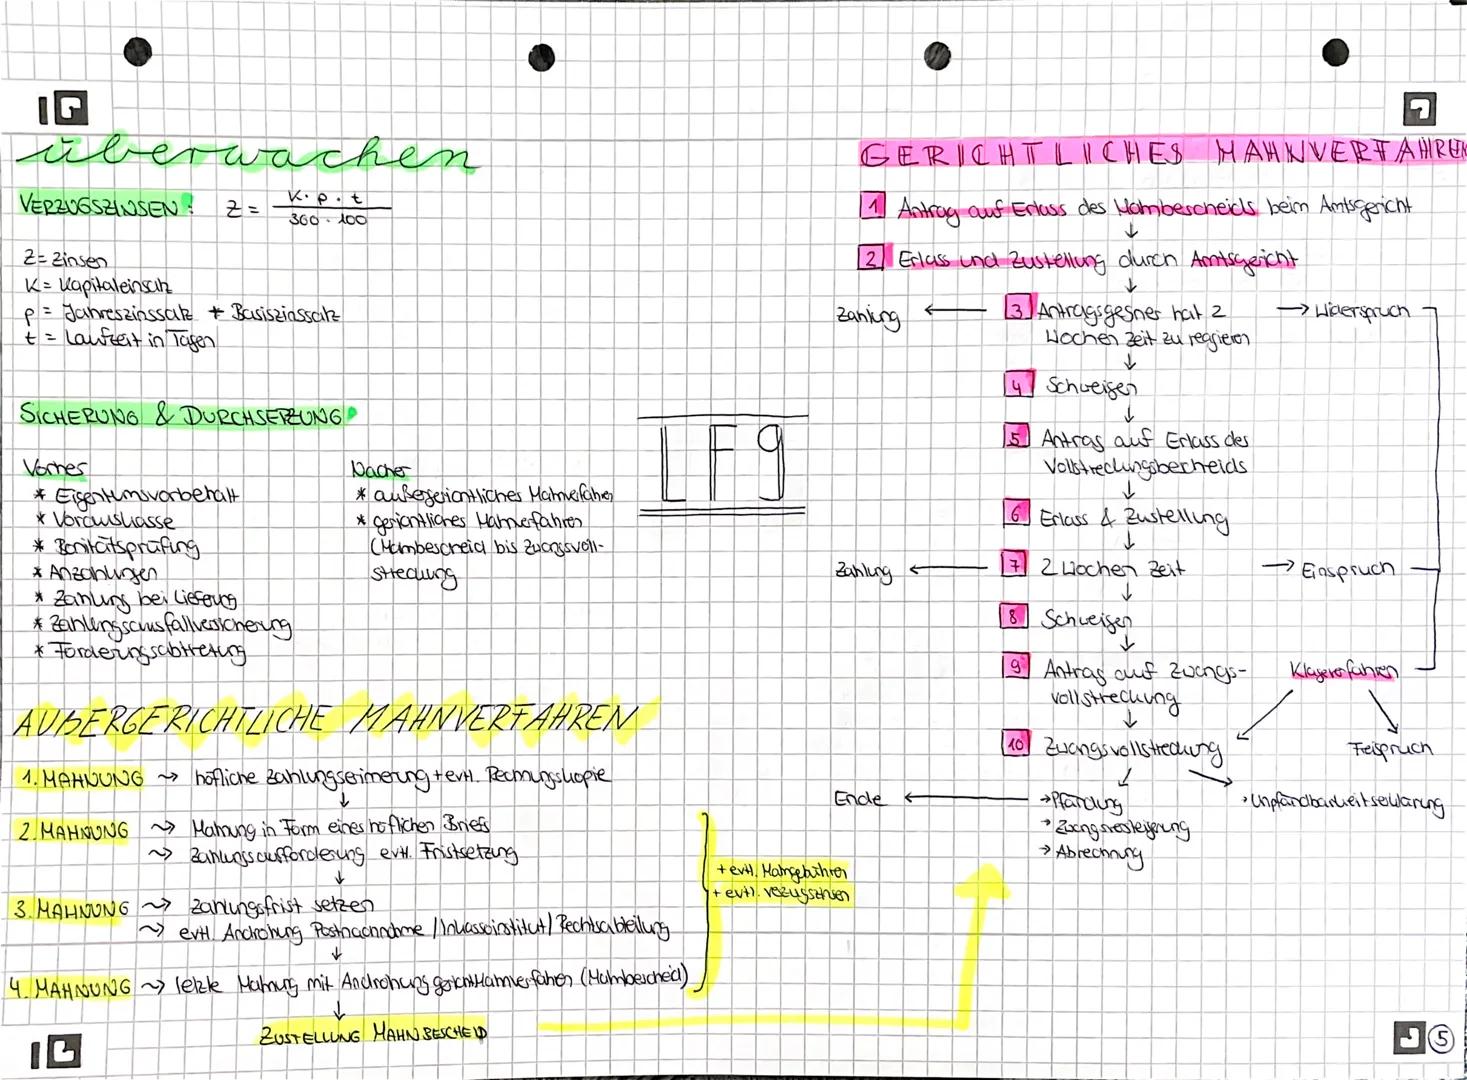 überwachen
VERZUGSZINSEN: Z = K · p · t / 360 · 100
Z = Zinsen
K = Kapitaleinsatz
p = Jahreszinssatz + Basiszinssatz
t = Laufzeit in Tagen
SICHERUNG & DURCHSETZUNG
Vorher
* Eigentumsvorbehalt
* Vorauskasse
* Bonitätsprüfing
* Anzahlungen
* Zahlung bei Lieferung
* Zahlungsausfallversicherung
* Forderungsabtretung
Nacher
* außergerichtliches Mahnverfahren
* gerichtliches Mahnverfahren
(Mahnbescheid bis Zwangsvoll-
streckung
LF9
AUßERGERICHTLICHE MAHNVERFAHREN
1. MAHNUNG ~> höfliche Zahlungserinnerung + evtl. Rechnungskopie
↓
2. MAHNUNG ~> Mahnung in Form eines höflichen Briefs
~> Zahlungsaufforderung evtl. Fristsetzung
↓
3. MAHNUNG ~> Zahlungsfrist setzen
~> evtl. Androhung Postnachnahme / Inkassoinstitut / Rechtsabteilung
↓
4. MAHNUNG ~> letzte Mahnung mit Androhung gericht. Mahnverfahren (Mahnbescheid)
↓
ZUSTELLUNG MAHNBESCHEID
+ evtl. Mahngebühren
+ evtl. Verzugszinsen
GERICHTLICHES MAHNVERFAHREN
1 Antrag auf Erlass des Mahnbescheids beim Amtsgericht
↓
2 Erlass und Zustellung durch Amtsgericht
↓
Zahlung ← 3 Antragsgegner hat 2 → Widerspruch
Wochen Zeit zu reagieren
↓
4 Schweigen
↓
5 Antrag auf Erlass des
Vollstreckungsbescheids
↓
6 Erlass & Zustellung
↓
Zahlung ← 7 2 Wochen Zeit → Einspruch
↓
8 Schweigen
↓
9 Antrag auf Zwangs- Klageverfahren
vollstreckung
↓
10 Zwangsvollstreckung Freispruch
Ende ← → Pfändung · Unpfändbarkeitserklärung
→ Zwangsversteigerung
→ Abrechnung
5